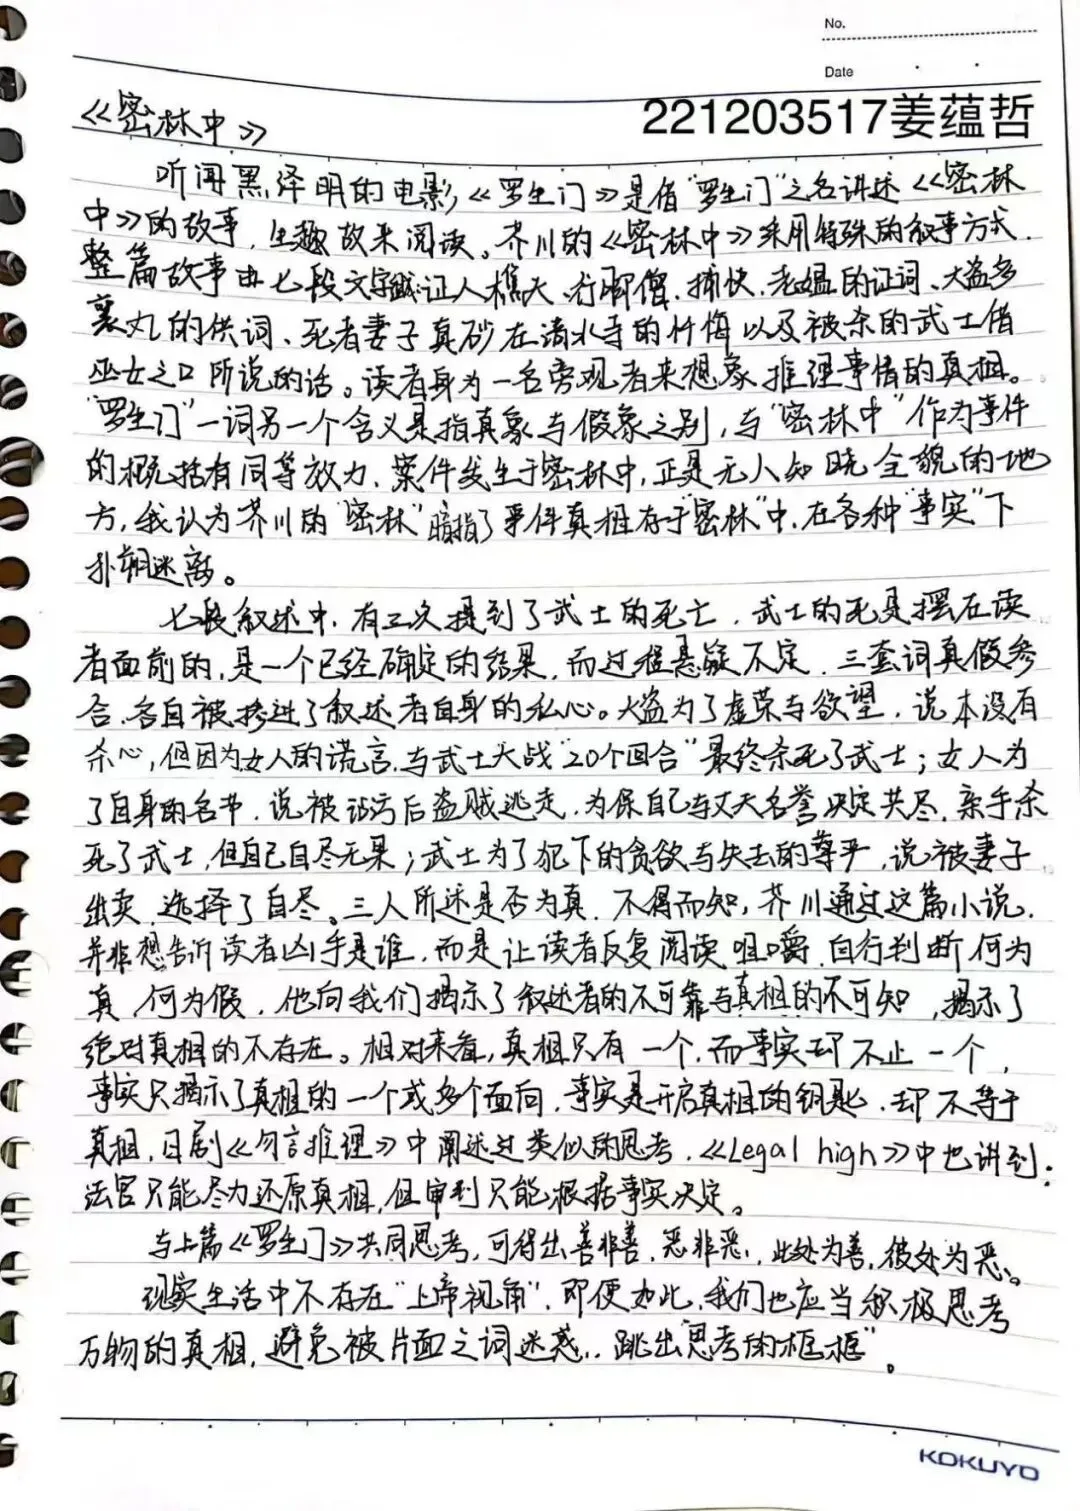 No.
Date
221203517姜蕴哲
《密林中》
听闻黑泽明的电影《罗生门》是借“罗生门”之名讲述《密林
中》的故事，生趣故来阅读。芥川的《密林中》采用特殊的叙事方式，
整篇故事由七段文字证人樵夫、行脚僧、捕快、老媪的证词、大盗多
襄丸的供词、死者妻子真砂在清水寺的忏悔以及被杀的武士借
巫女之口所说的话。读者身为一名旁观者来想象推理事情的真相。
“罗生门”一词另一个含义是指真象与假象之别，与“密林中”作为事件
的概括有同等效力，案件发生于密林中，正是无人知晓全貌的地
方，我认为芥川的“密林”暗指了事件真相存于“密林”中，在各种“事实”下
扑朔迷离。
七段叙述中，有三次提到了武士的死亡，武士的死是摆在读
者面前的，是一个已经确定的结果，而过程悬疑不定，三套词真假参
合，各自被掺进了叙述者自身的私心。大盗为了虚荣与欲望，说本没有
杀心，但因为女人的谎言，与武士大战“20个回合”最终杀死了武士；女人为
了自身的名节，说被玷污后盗贼逃走，为保自己与丈夫名誉决定共尽，亲手杀
死了武士，但自己自尽无果；武士为了犯下的贪欲与失去的尊严，说被妻子
出卖，选择了自尽。三人所述是否为真，不得而知，芥川通过这篇小说，
并非想告诉读者凶手是谁，而是让读者反复阅读咀嚼，自行判断何为
真，何为假，他向我们揭示了叙述者的不可靠与真相的不可知，揭示了
绝对真相的不存在。相对来看，真相只有一个，而事实却不止一个，
事实只揭示了真相的一个或多个面向，事实是开启真相的钥匙，却不等于
真相，日剧《勿言推理》中阐述过类似的思考，《Legal high》中也讲到：
法官只能尽力还原真相，但审判只能根据事实决定。
与上篇《罗生门》共同思考，可得出善非善，恶非恶，此处为善，彼处为恶。
现实生活中不存在“上帝视角”，即便如此，我们也应当积极思考
万物的真相，避免被片面之词迷惑，跳出“思考的框框”。
KOKUYO